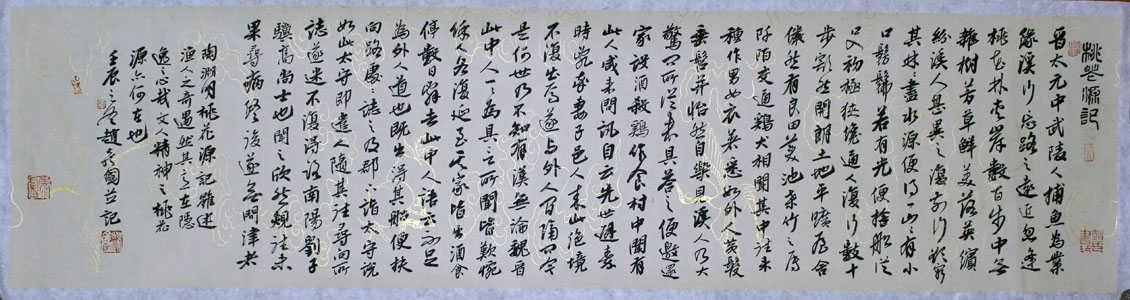 桃花源記
晉太元中武陵人捕魚為業
緣溪行忘路之遠近忽逢
桃花林夾岸數百步中無
雜樹芳草鮮美落英繽
紛漁人甚異之復前行欲窮
其林林盡水源便得一山山有小
口髣髴若有光便捨船從
口入初極狹纔通人復行數十
步豁然開朗土地平曠屋舍
儼然有良田美池桑竹之屬
阡陌交通雞犬相聞其中往來
種作男女衣著悉如外人黃髮
垂髫并怡然自樂見漁人乃大
驚問所從來具答之便邀還
家設酒殺雞作食村中聞有
此人咸來問訊自云先世避秦
時亂率妻子邑人來此絕境
不復出焉遂與外人間隔問今
是何世乃不知有漢無論魏晉
此中人一一為具言所聞皆歎惋
餘人各復延至其家皆出酒食
停數日辭去此中人語云不足
為外人道也既出得其船便扶
向路處處誌之及郡下詣太守說
如此太守即遣人隨其往尋向所
誌遂迷不復得路南陽劉子
驥高尚士也聞之欣然規往未
果尋病終後遂無問津者
陶淵明桃花源記雖述
漁人之奇遇然其意在隱
逸之心哉文人精神之桃花
源亦何在也
壬辰之 趙 國 記